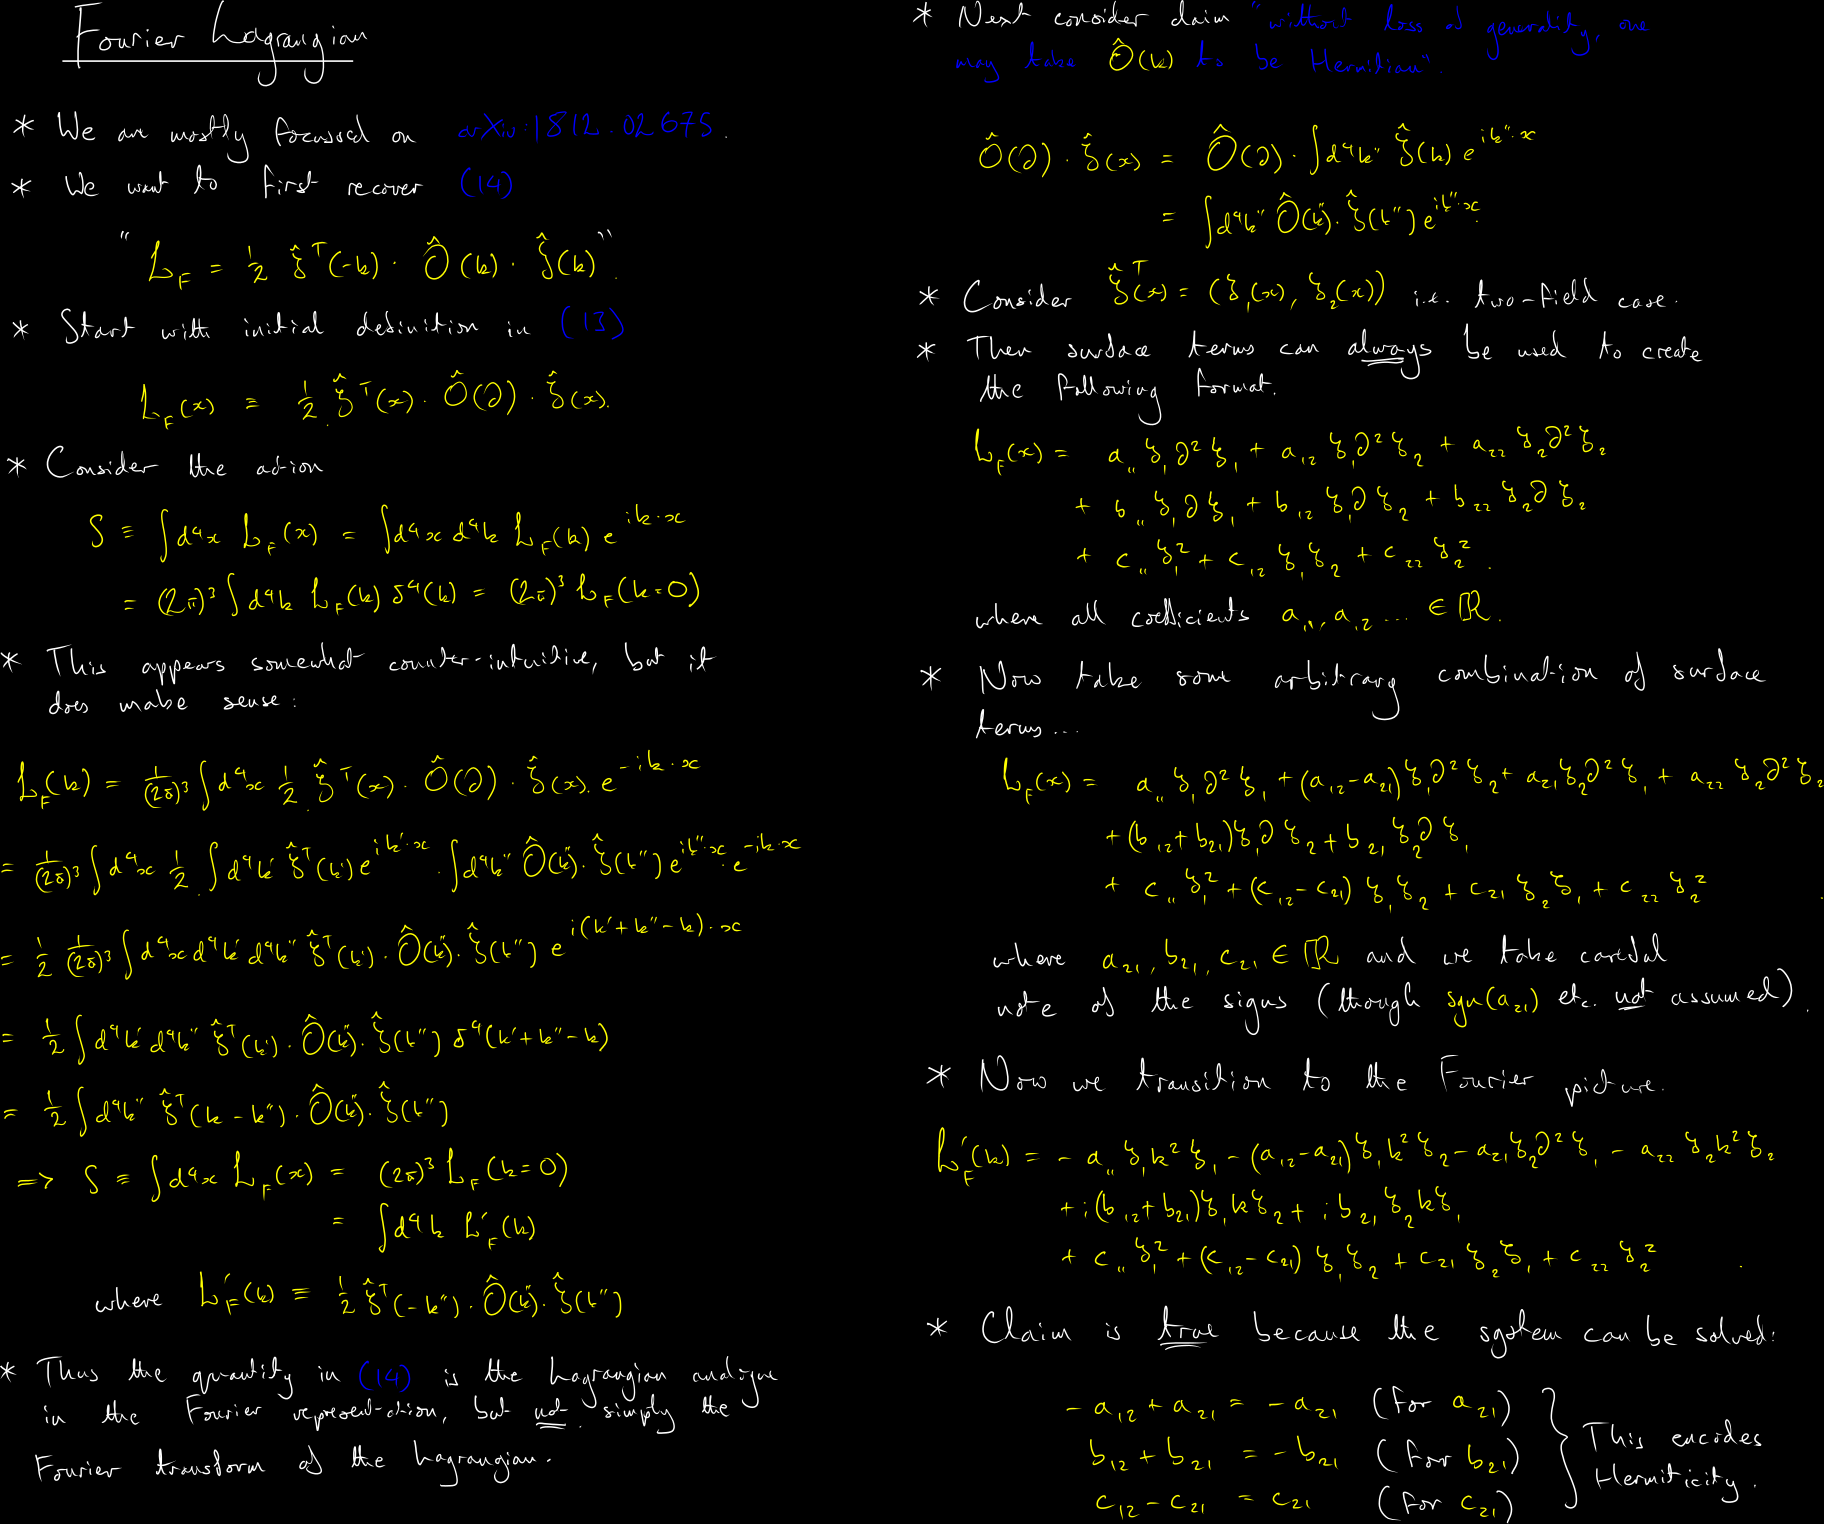 Fourier Lagrangian
* We are mostly focussed on arXiv:1812.02675.
* We want to first recover (14)
"L_F = 1/2 ζ̂^T(-k) · Ô(k) · ζ̂(k)".
* Start with initial definition in (13)
L_F(x) ≡ 1/2 ζ̂^T(x) · Ô(∂) · ζ̂(x).
* Consider the action
S ≡ ∫d⁴x L_F(x) = ∫d⁴x d⁴k L_F(k) e^{ik·x}
= (2π)³ ∫d⁴k L_F(k) δ⁴(k) = (2π)³ L_F(k=0)
* This appears somewhat counter-intuitive, but it
does make sense:
L_F(k) = 1/(2π)³ ∫d⁴x 1/2 ζ̂^T(x) · Ô(∂) · ζ̂(x). e^{-ik·x}
= 1/(2π)³ ∫d⁴x 1/2 ∫d⁴k' ζ̂^T(k') e^{ik'·x} · ∫d⁴k'' Ô(k'') · ζ̂(k'') e^{ik''·x} · e^{-ik·x}
= 1/2 1/(2π)³ ∫d⁴x d⁴k' d⁴k'' ζ̂^T(k') · Ô(k'') · ζ̂(k'') e^{i(k'+k''-k)·x}
= 1/2 ∫d⁴k' d⁴k'' ζ̂^T(k') · Ô(k'') · ζ̂(k'') δ⁴(k'+k''-k)
= 1/2 ∫d⁴k'' ζ̂^T(k-k'') · Ô(k'') · ζ̂(k'')
=> S ≡ ∫d⁴x L_F(x) = (2π)³ L_F(k=0)
= ∫d⁴k L'_F(k)
where L'_F(k) ≡ 1/2 ζ̂^T(-k'') · Ô(k'') · ζ̂(k'')
* Thus the quantity in (14) is the Lagrangian analogue
in the Fourier representation, but not simply the
Fourier transform of the Lagrangian.
* Next consider claim "without loss of generality, one
may take Ô(k) to be Hermitian".
Ô(∂) · ζ̂(x) = Ô(∂) · ∫d⁴k'' ζ̂(k) e^{ik''·x}
= ∫d⁴k'' Ô(k'') · ζ̂(k'') e^{ik''·x}
* Consider ζ̂^T(x) = (ζ₁(x), ζ₂(x)) i.e. two-field case.
* Then surface terms can always be used to create
the following format.
L_F(x) = a₁₁ ζ₁∂²ζ₁ + a₁₂ ζ₁∂²ζ₂ + a₂₂ ζ₂∂²ζ₂
+ b₁₁ ζ₁∂ζ₁ + b₁₂ ζ₁∂ζ₂ + b₂₂ ζ₂∂ζ₂
+ c₁₁ ζ₁² + c₁₂ ζ₁ζ₂ + c₂₂ ζ₂².
where all coefficients a₁₁, a₁₂ ... ∈ ℝ.
* Now take some arbitrary combination of surface
terms...
L_F(x) = a₁₁ ζ₁∂²ζ₁ + (a₁₂-a₂₁)ζ₁∂²ζ₂ + a₂₁ζ₂∂²ζ₁ + a₂₂ ζ₂∂²ζ₂
+ (b₁₂+b₂₁)ζ₁∂ζ₂ + b₂₁ ζ₂∂ζ₁
+ c₁₁ ζ₁² + (c₁₂-c₂₁) ζ₁ζ₂ + c₂₁ ζ₂ζ₁ + c₂₂ ζ₂² .
where a₂₁, b₂₁, c₂₁ ∈ ℝ and we take careful
note of the signs (though sgn(a₂₁) etc. not assumed).
* Now we transition to the Fourier picture.
L'_F(k) = - a₁₁ ζ₁k²ζ₁ - (a₁₂-a₂₁)ζ₁k²ζ₂ - a₂₁ζ₂∂²ζ₁ - a₂₂ ζ₂k²ζ₂
+ i(b₁₂+b₂₁)ζ₁kζ₂ + i b₂₁ ζ₂kζ₁
+ c₁₁ ζ₁² + (c₁₂-c₂₁) ζ₁ζ₂ + c₂₁ ζ₂ζ₁ + c₂₂ ζ₂² .
* Claim is true because the system can be solved:
- a₁₂ + a₂₁ = - a₂₁ (for a₂₁)
b₁₂ + b₂₁ = - b₂₁ (for b₂₁)
c₁₂ - c₂₁ = c₂₁ (for c₂₁)
} This encodes
Hermiticity.